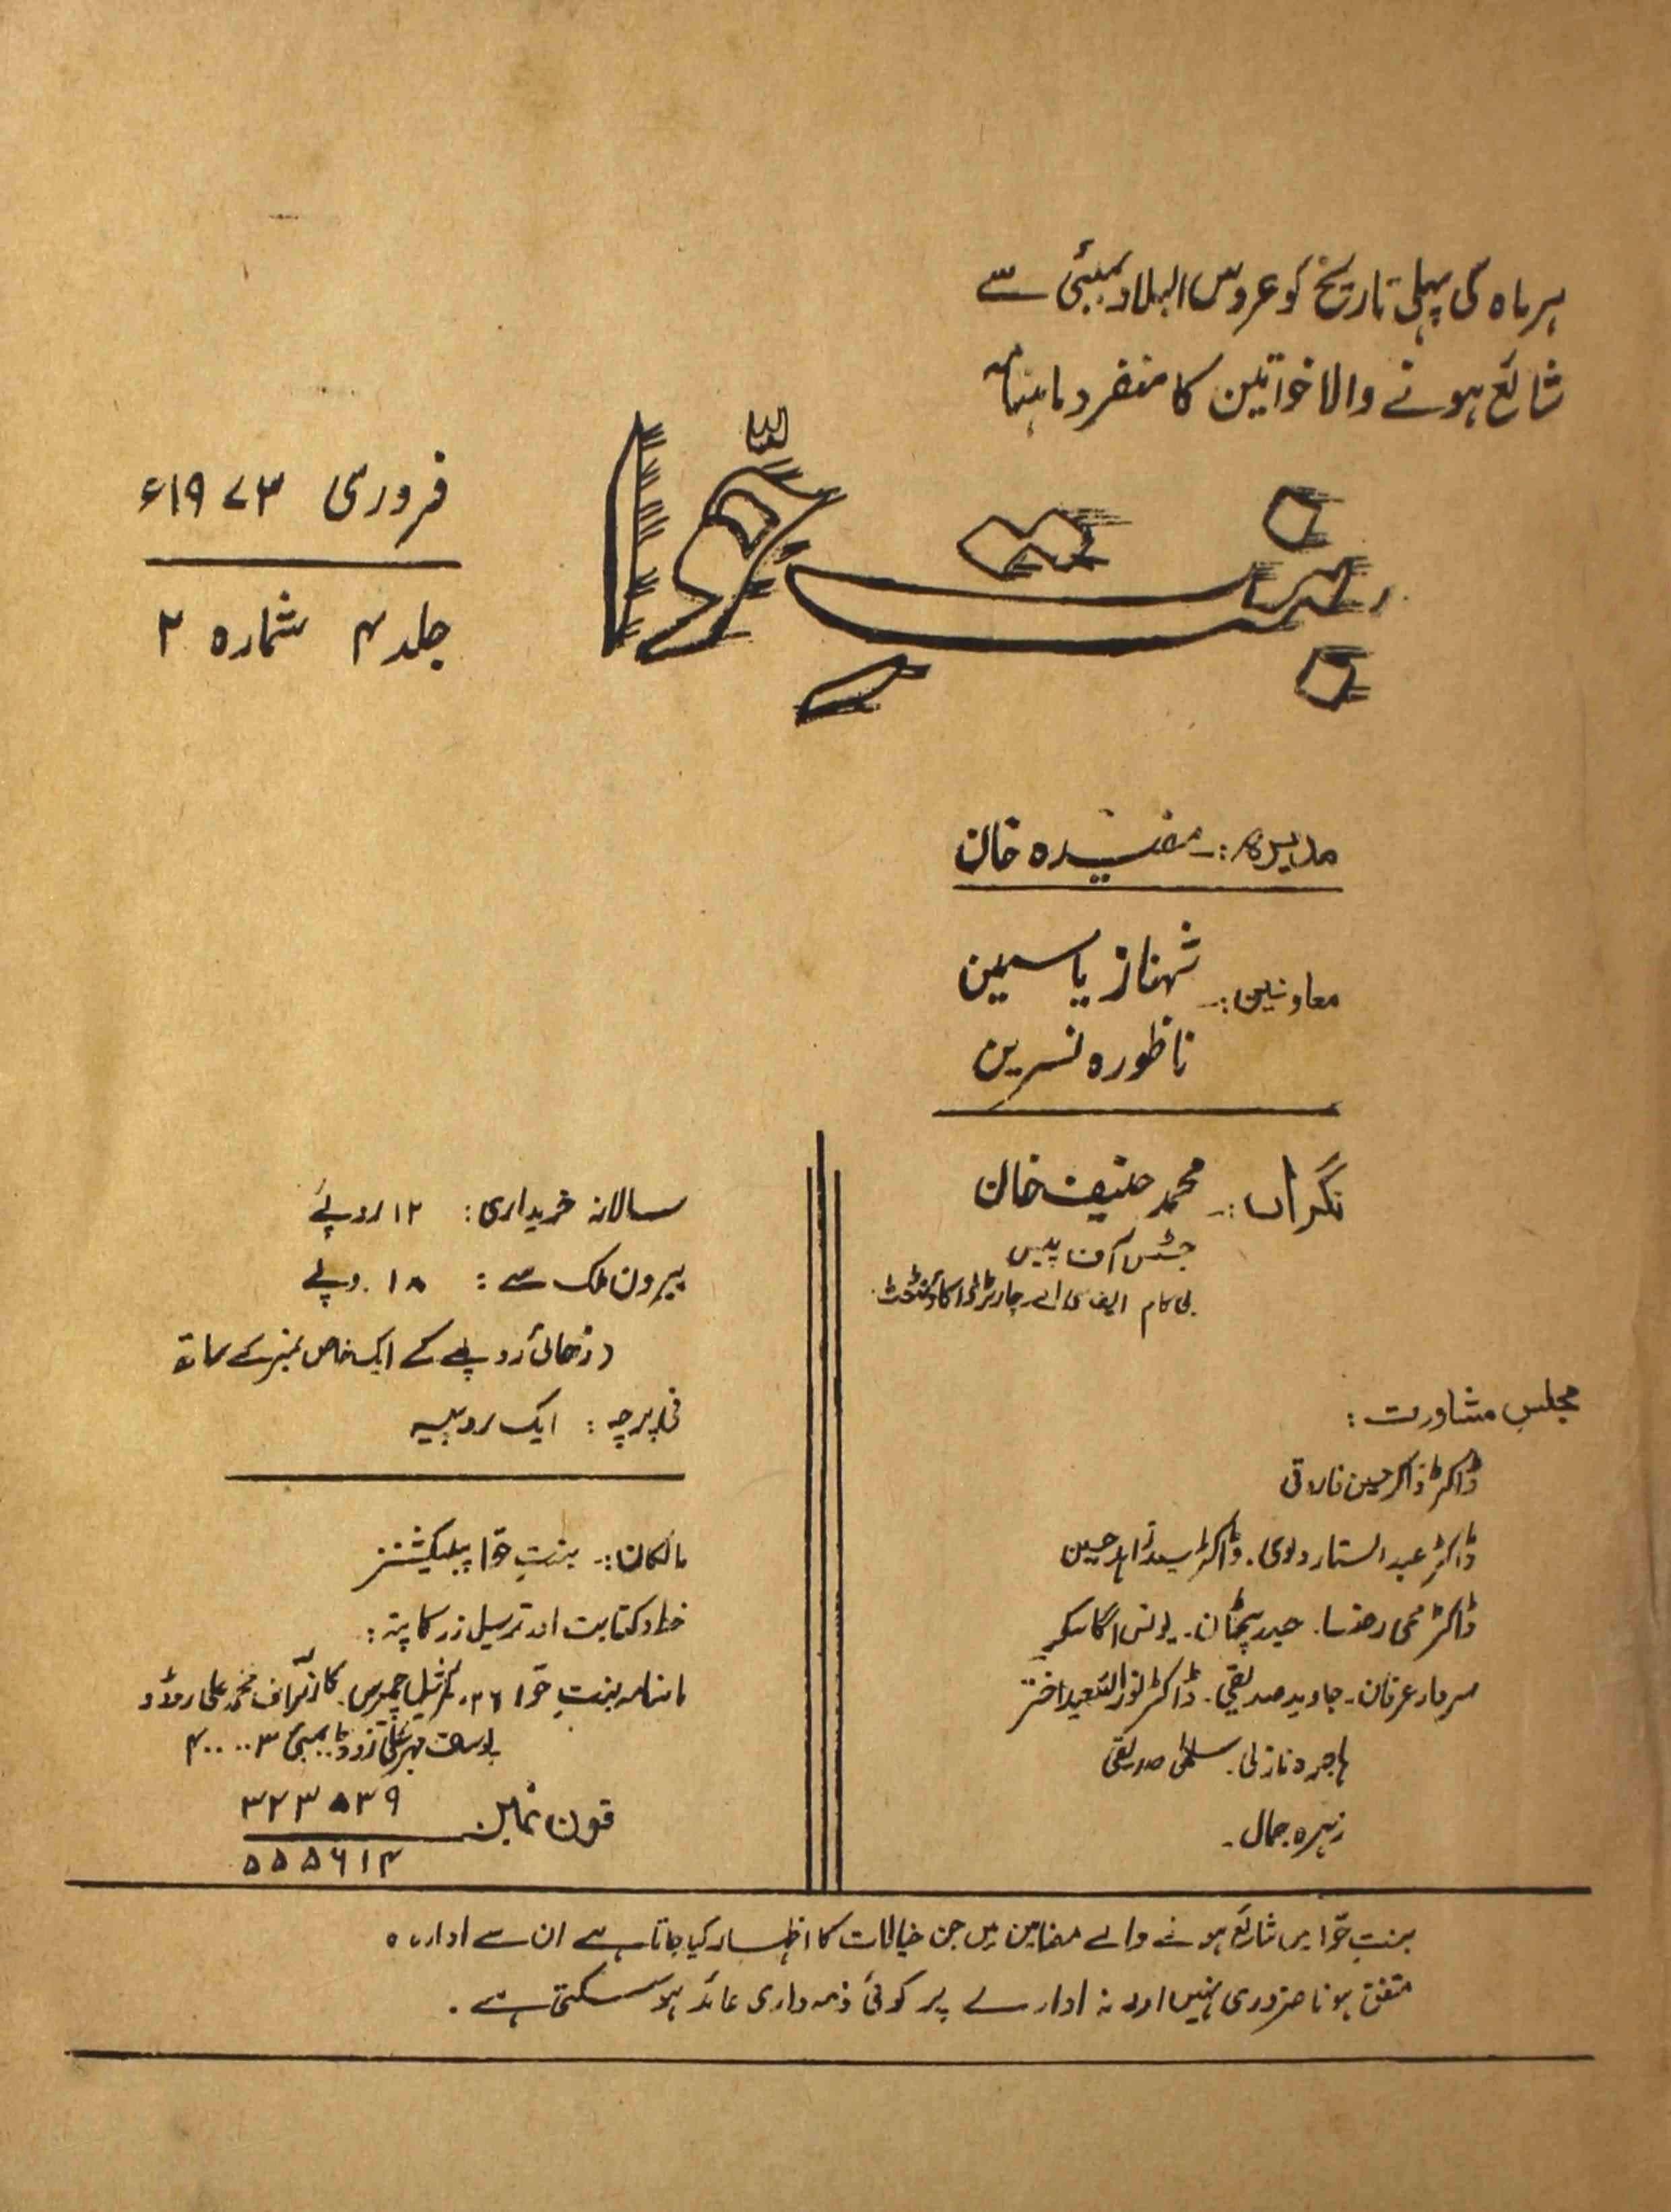 ہر ماہ کی پہلی تاریخ کو عروس البلاد بمبئی سے
شائع ہونے والا خواتین کا منفرد ماہنامہ
بنتِ حوّا
فروری ۱۹۷۳ء
جلد ۴ شمارہ ۲
مدیرہ:۔ مفیدہ خان
معاونین:۔ شہناز یاسمین
ناظورہ نسرین
نگراں:۔ محمد حنیف خان
جسٹس آف پیس
بی کام ایف سی اے۔ چارٹرڈ اکاؤنٹنٹ
مجلس مشاورت:
ڈاکٹر ذاکر حسین فاروقی
ڈاکٹر عبدالستار دلوی۔ ڈاکٹر سید زاہد حسین
ڈاکٹر محی رضا۔ حیدر پٹھان۔ یونس اگاسکر
سردار عرفان۔ جاوید صدیقی۔ ڈاکٹر نورالسعید اختر
ہاجرہ نازلی۔ سلمیٰ صدیقی
زہرہ جمال۔
سالانہ خریداری: ۱۲ روپئے
بیرون ملک سے: ۱۸ روپئے
(ڈھائی روپئے کے ایک خاص نمبر کے ساتھ
فی پرچہ: ایک روپیہ
مالکان:۔ بنتِ حوّا پبلیکشنز
خط و کتابت اور ترسیل زر کا پتہ:
ماہنامہ بنتِ حوّا ۳۶، کمرشیل چیمبرس۔ کارنر آف محمد علی روڈ و
یوسف مہر علی روڈ، بمبئی ۴۰۰۰۰۳
فون نمبر ۳۲۳۵۳۹
۵۵۵۶۱۴
بنتِ حوّا میں شائع ہونے والے مضامین میں جن خیالات کا اظہار کیا جاتا ہے ان سے ادارہ
متفق ہونا ضروری نہیں اور نہ ادارے پر کوئی ذمہ داری عائد ہو سکتی ہے۔